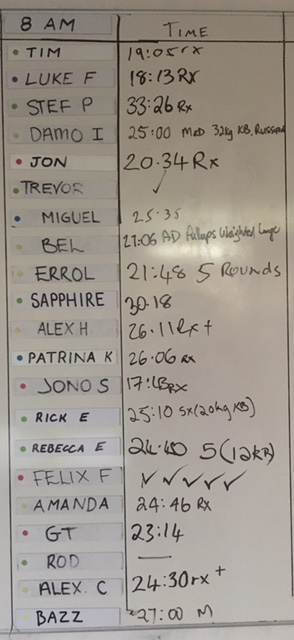 8 AM TIME
TIM 19:05 rx
LUKE F 18:13 Rx
STEF P 33:26 Rx
DAMO I 25:00 Mod 32kg KB, Russian
JON 20.34 Rx
TREVOR ✓
MIGUEL 25:35
BEL 27:06 AD Pullups Weighted Lunge
ERROL 21:48 5 Rounds
SAPPHIRE 30.18
ALEX H 26.11 Rx +
PATRINA K 26.06 RX
JONO S 17:48 RX
RICK E 25:10 5x(20kg KB)
REBECCA E 24:40 5 (12KB)
FELIX F ✓ ✓ ✓ ✓ ✓
AMANDA 24:46 Rx
GT 23:14
ROD —
ALEX. C 24:30 rx +
BAZZ 27:00 M